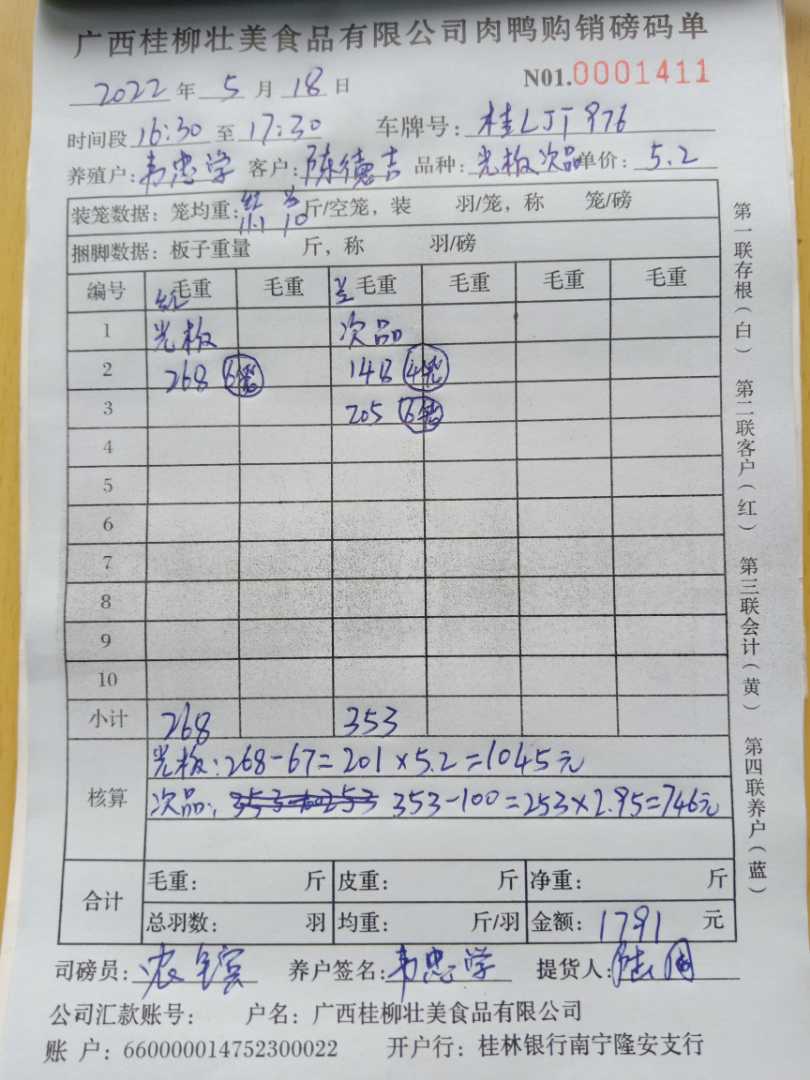 广西桂柳壮美食品有限公司肉鸭购销磅码单
2022年5月18日 N01.0001411
时间段16:30至17:30 车牌号:桂LJT976
养殖户:韦忠学 客户:陈德吉 品种:光板次品 单价:5.2
装笼数据:笼均重:红11.1 兰10斤/空笼,装 羽/笼,称 笼/磅
捆脚数据:板子重量 斤,称 羽/磅
编号 红毛重 毛重 兰毛重 毛重 毛重 毛重
1 光板 次品
2 268 6笼 148 4笼
3 205 6笼
4
5
6
7
8
9
10
小计 268 353
核算 光板:268-67=201×5.2=1045元
次品:353-100=253×2.95=746元
合计 毛重: 斤 皮重: 斤 净重: 斤
总羽数: 羽 均重: 斤/羽 金额:1791元
司磅员: 养户签名:韦忠学 提货人:
公司汇款账号: 户名:广西桂柳壮美食品有限公司
账 户:660000014752300022 开户行:桂林银行南宁隆安支行
第一联存根(白) 第二联客户(红) 第三联会计(黄) 第四联养户(蓝)